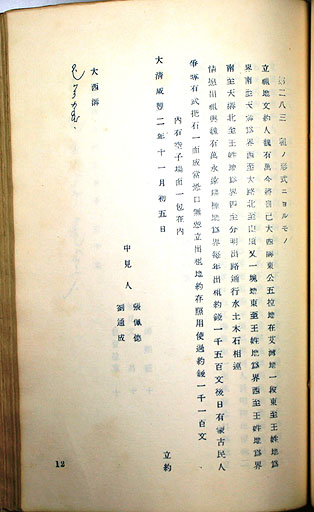 第二八三 租ノ形式ニヨルモノ
立租地文約人魏有萬今將自己大西溝東公五拉地在艾灣地一段東至王姓地爲界
界南至大溝北至王姓地爲界西至大路北至山頂又一塊地東至王姓地爲界西至王姓地爲界
南至大溝北至王姓地爲界四至分明出路通行水土木石相連
情愿出租與魏有萬永遠耕種地爲界每年出租約錢一千五百文後日有蒙古民人
爭奪有武把石一面成當地口無憑立出租地約存照用使過約錢一千一百文
內有空子場面一包在內
大清咸豐二年十一月初五日 立約
中見人 張佩德
劉通成
大西溝
12